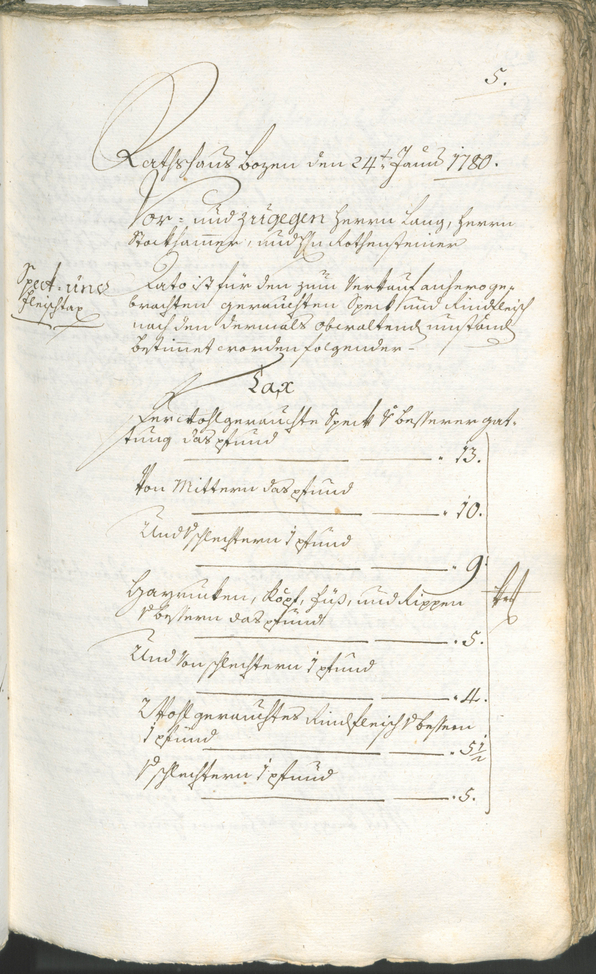 5.
Rathshaus Bozen den 24t. Janu 1780.
Vor= und zugegen Herrn Lang, Herrn
Stockhammer, und Hrn Rothensteiner
Speck= und
fleischtax
Dato ist für den zum Verkauf anhero ge=
brachten gerauchten Speck und Rindfleisch
nach den dermals obwaltend umständ
bestimet worden folgender
Tax
Fer wohlgerauchte Speck besserer gat=
tung das pfund
13.
Von Mittern das pfund
10.
Und schlechtern 1 pfund
9
köpf, füs, und Rippen
bessern das pfund
5.
Und von schlechtern 1 pfund
4.
Wohlgerauchtes Rindfleisch bessern
1 pfund
5 1/2
schlechtern 1 pfund
5.